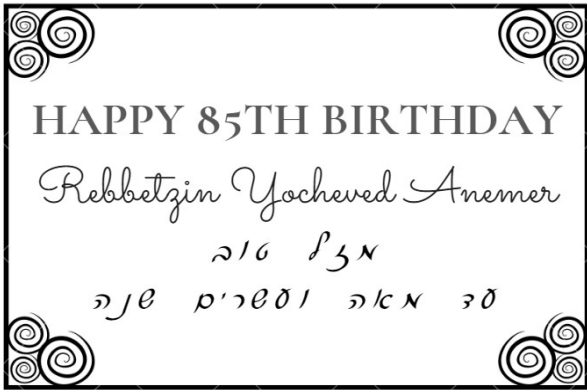 HAPPY 85TH BIRTHDAY
Rebbetzin Yocheved Anemer
מזל טוב
עד מאה ועשרים שנה